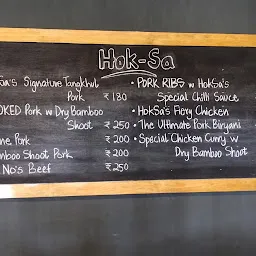 Hok-Sa
Sa's Signature Tangkhul
Pork ₹ 180
OKED Pork w Dry Bamboo
Shoot ₹ 250
ne Pork ₹ 200
mboo Shoot Pork ₹ 200
No's Beef ₹ 250
• PORK RIBS w HokSa's
Special Chilli Sauce
• HokSa's Fiery Chicken
• The Ultimate Pork Biryani
• Special Chicken Curry w
Dry Bamboo Shoot